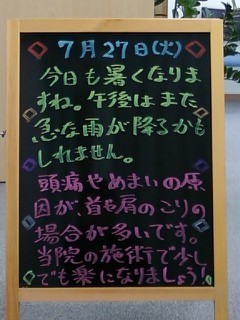 7月27日(火)
今日も暑くなりま
すね。午後はまた
急な雨が降るかも
しれません。
頭痛やめまいの原
因が、首や肩のこりの
場合が多いです。
当院の施術で少し
でも楽になりましょう!